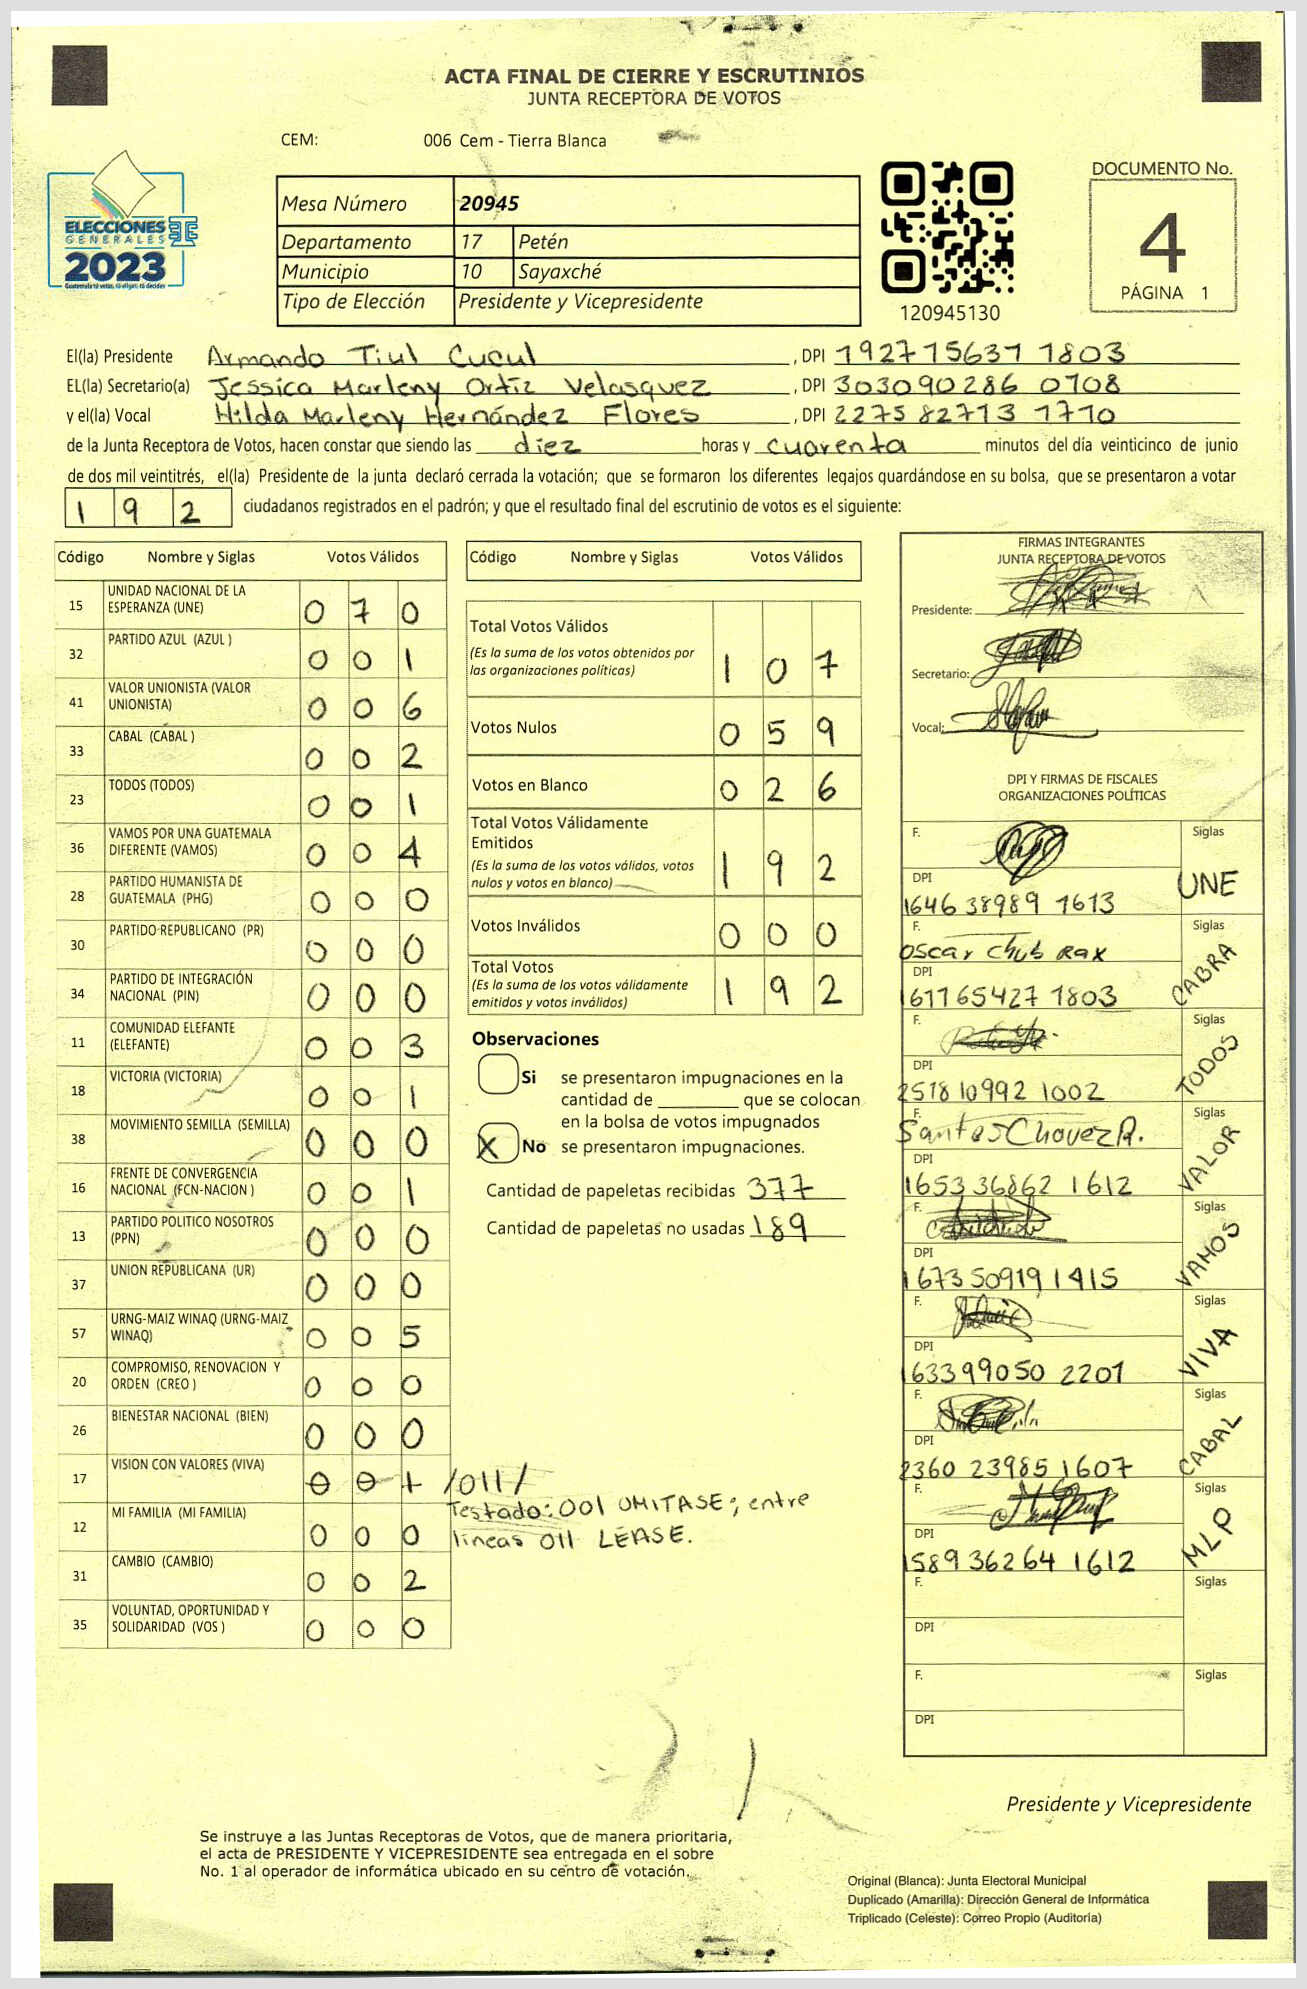 ACTA FINAL DE CIERRE Y ESCRUTINIOS
JUNTA RECEPTORA DE VOTOS
CEM: 006 Cem - Tierra Blanca
ELECCIONES
GENERALES
2023
Guatemala tú votas, tú eliges, tú decides
Mesa Número 20945
Departamento 17 Petén
Municipio 10 Sayaxché
Tipo de Elección Presidente y Vicepresidente
120945130
DOCUMENTO No.
4
PÁGINA 1
El(la) Presidente Armando Tiul Cucul, DPI 192715631 1803
EL(la) Secretario(a) Jessica Marleny Ortiz Velasquez, DPI 303090286 0108
y el(la) Vocal Hilda Marleny Hernández Flores, DPI 2275 82713 1710
de la Junta Receptora de Votos, hacen constar que siendo las diez horas y cuarenta minutos del día veinticinco de junio
de dos mil veintitrés, el(la) Presidente de la junta declaró cerrada la votación; que se formaron los diferentes legajos guardándose en su bolsa, que se presentaron a votar
192 ciudadanos registrados en el padrón; y que el resultado final del escrutinio de votos es el siguiente:
Código Nombre y Siglas Votos Válidos
15 UNIDAD NACIONAL DE LA ESPERANZA (UNE) 0 7 0
32 PARTIDO AZUL (AZUL ) 0 0 1
41 VALOR UNIONISTA (VALOR UNIONISTA) 0 0 6
33 CABAL (CABAL ) 0 0 2
23 TODOS (TODOS) 0 0 1
36 VAMOS POR UNA GUATEMALA DIFERENTE (VAMOS) 0 0 4
28 PARTIDO HUMANISTA DE GUATEMALA (PHG) 0 0 0
30 PARTIDO REPUBLICANO (PR) 0 0 0
34 PARTIDO DE INTEGRACIÓN NACIONAL (PIN) 0 0 0
11 COMUNIDAD ELEFANTE (ELEFANTE) 0 0 3
18 VICTORIA (VICTORIA) 0 0 1
38 MOVIMIENTO SEMILLA (SEMILLA) 0 0 0
16 FRENTE DE CONVERGENCIA NACIONAL (FCN-NACION ) 0 0 1
13 PARTIDO POLITICO NOSOTROS (PPN) 0 0 0
37 UNION REPUBLICANA (UR) 0 0 0
57 URNG-MAIZ WINAQ (URNG-MAIZ WINAQ) 0 0 5
20 COMPROMISO, RENOVACION Y ORDEN (CREO ) 0 0 0
26 BIENESTAR NACIONAL (BIEN) 0 0 0
17 VISION CON VALORES (VIVA) 0 0 1 /011/
Testado: 001 OMITASE; entre
lineas 011 LEASE.
12 MI FAMILIA (MI FAMILIA) 0 0 0
31 CAMBIO (CAMBIO) 0 0 2
35 VOLUNTAD, OPORTUNIDAD Y SOLIDARIDAD (VOS ) 0 0 0
Código Nombre y Siglas Votos Válidos
Total Votos Válidos 1 0 7
(Es la suma de los votos obtenidos por
las organizaciones políticas)
Votos Nulos 0 5 9
Votos en Blanco 0 2 6
Total Votos Válidamente
Emitidos 1 9 2
(Es la suma de los votos válidos, votos
nulos y votos en blanco)
Votos Inválidos 0 0 0
Total Votos 1 9 2
(Es la suma de los votos válidamente
emitidos y votos inválidos)
Observaciones
Si se presentaron impugnaciones en la
cantidad de ________ que se colocan
en la bolsa de votos impugnados
X No se presentaron impugnaciones.
Cantidad de papeletas recibidas 377
Cantidad de papeletas no usadas 189
FIRMAS INTEGRANTES
JUNTA RECEPTORA DE VOTOS
Presidente:
Secretario:
Vocal:
DPI Y FIRMAS DE FISCALES
ORGANIZACIONES POLÍTICAS
F. Siglas
DPI UNE
1646 38989 1613
F. Siglas
Oscar Chub Rax
DPI CABRA
1611 65427 1803
F. Siglas
DPI TODOS
2518 10992 1002
F. Siglas
Santos Chavez R.
DPI VALOR
1653 36862 1612
F. Siglas
DPI VAMOS
1673 50919 1415
F. Siglas
DPI VIVA
1633 99050 2201
F. Siglas
DPI CABAL
2360 23985 1607
F. Siglas
DPI MLP
1589 36264 1612
F. Siglas
DPI
F. Siglas
DPI
Presidente y Vicepresidente
Se instruye a las Juntas Receptoras de Votos, que de manera prioritaria,
el acta de PRESIDENTE Y VICEPRESIDENTE sea entregada en el sobre
No. 1 al operador de informática ubicado en su centro de votación.
Original (Blanca): Junta Electoral Municipal
Duplicado (Amarilla): Dirección General de Informática
Triplicado (Celeste): Correo Propio (Auditoría)